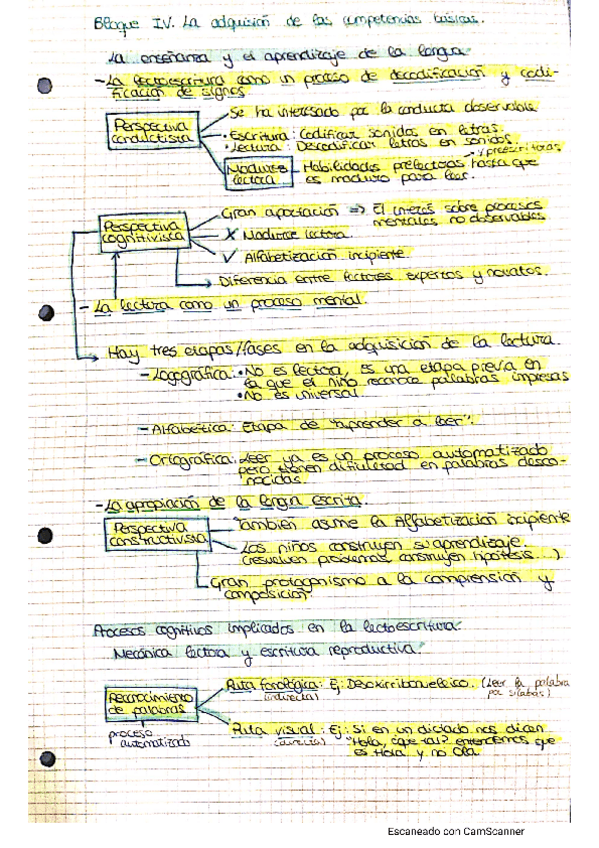 Bloque IV. La adquisición de las competencias básicas.
La enseñanza y el aprendizaje de la lengua
- La lectoescritura como un proceso de decodificación y codi-
ficación de signos
Perspectiva
conductista
Se ha interesado por la conducta observable
• Escritura: Codificar sonidos en letras.
• Lectura: Descodificar letras en sonidos.
y preescritoras
Madurez
lectora
Habilidades prelectoras hasta que
es maduro para leer.
Perspectiva
cognitivista
Gran aportación => El interés sobre procesos
mentales no observables
X Madurez lectora.
✓ Alfabetización incipiente.
Diferencia entre lectores expertos y novatos.
- La lectura como un proceso mental.
Hay tres etapas/fases en la adquisición de la lectura.
- Logográfica: • No es lectora, es una etapa previa en
la que el niño reconoce palabras impresas
• No es universal.
- Alfabética: Etapa de "aprender a leer".
- Ortográfica: Leer ya es un proceso automatizado
pero tienen dificultad en palabras desco-
nocidas.
- La apropiación de la lengua escrita.
Perspectiva
constructivista
También asume la Alfabetización incipiente
Los niños construyen su aprendizaje.
(resuelven problemas, construyen hipótesis...)
Gran protagonismo a la comprensión y
composición.
Procesos cognitivos implicados en la lectoescritura.
Mecánica lectora y escritura reproductiva.
Reconocimiento
de palabras
proceso
automatizado
Ruta fonológica: Ej: Desoxirribonucleico. (Leer la palabra
por sílabas)
(indirecta)
Ruta visual: Ej: Si en un dictado nos dicen
(directa)
"Hola, ¿que tal? entendemos que
es Hola y no Ola
Escaneado con CamScanner